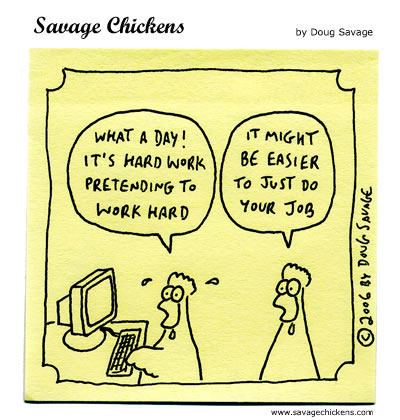 Savage Chickens
by Doug Savage
WHAT A DAY!
IT'S HARD WORK
PRETENDING TO
WORK HARD
IT MIGHT
BE EASIER
TO JUST DO
YOUR JOB
© 2006 BY DOUG SAVAGE
www.savagechickens.com